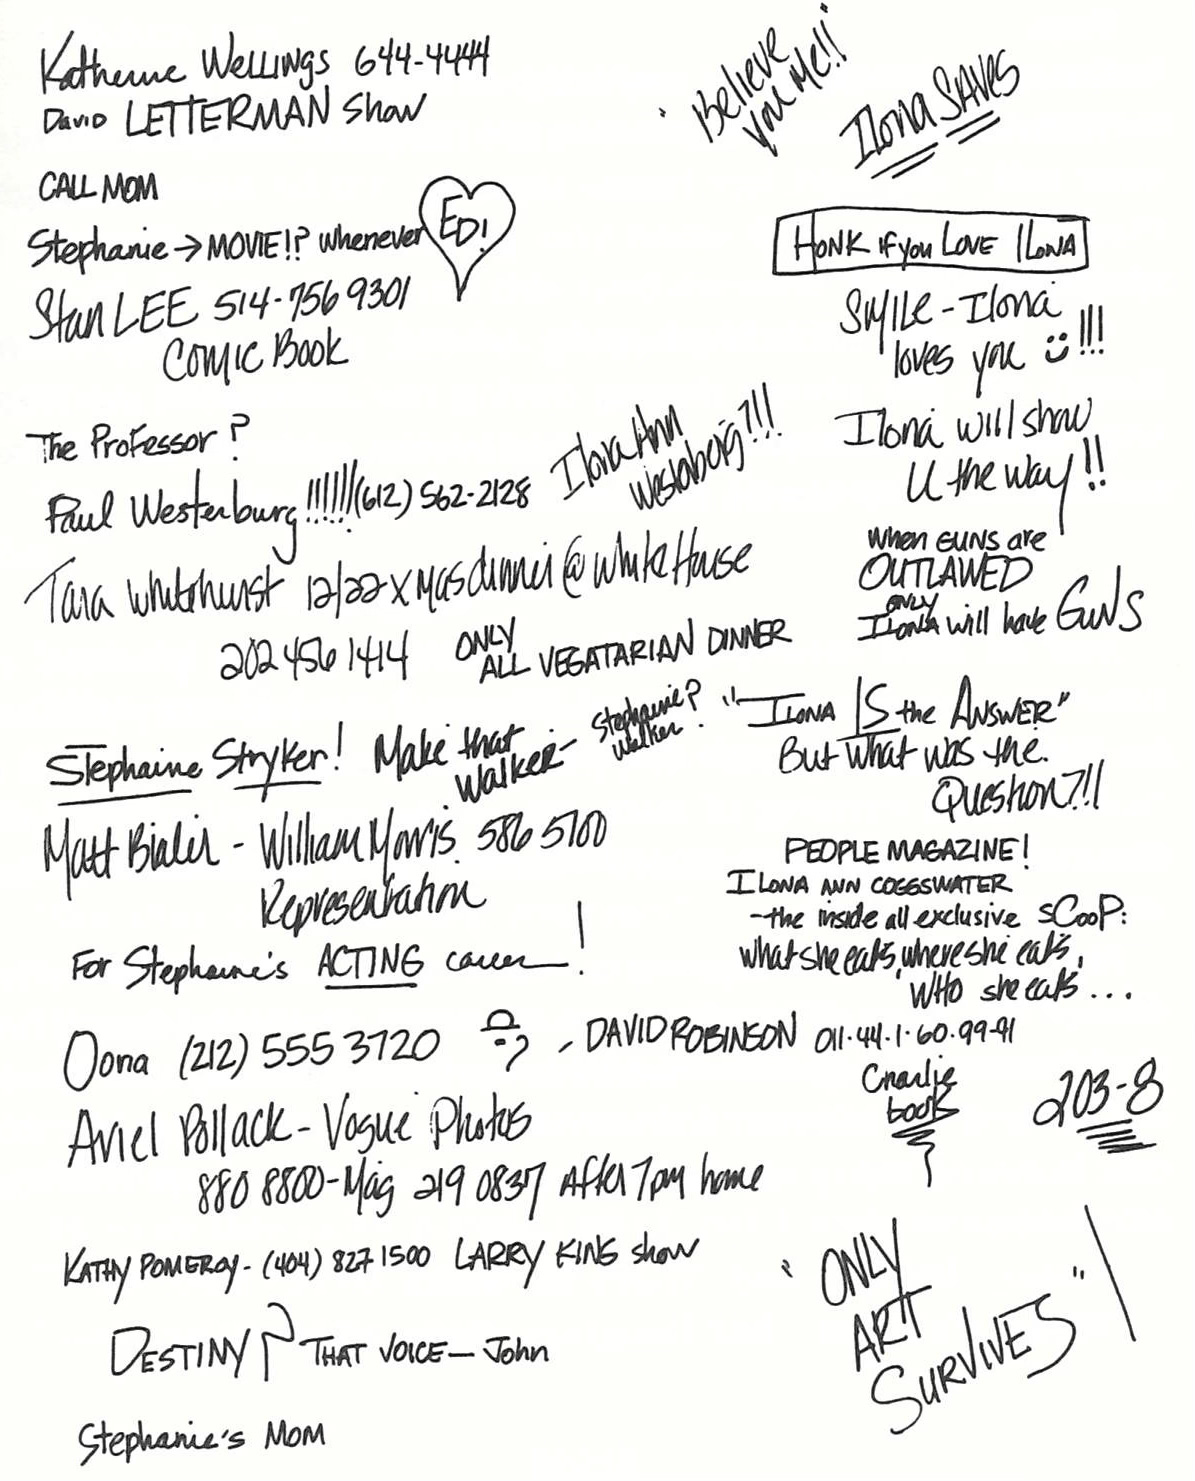 Katherine Wellings 644-4444
David LETTERMAN Show
CALL MOM
Stephanie → MOVIE!? whenever
ED!
Stan LEE 514-756 9301
Comic Book
The Professor?
Paul Westerburg!!!!!! (612) 562-2128
Ilona Ann
Westerburg?!!!
Tara Whitehurst 12/22 Xmas dinner @ White House
202 456 1414
ONLY
ALL VEGATARIAN DINNER
Stephaine Stryker! Make that
Walker-
Stephanie?
Walker.
Matt Bialer - William Morris 586 5100
Representation
For Stephanie's ACTING career!
Oona (212) 555 3720
- DAVID ROBINSON 011.44.1.60.99-91
Charlie
book
203-8
Ariel Pollack - Vogue Photos
880 8800-Mag 219 0837 After 7pm home
KATHY POMEROY - (404) 827 1500 LARRY KING show
DESTINY? THAT VOICE - John
Stephanie's MOM
"Believe
you Me!!"
Ilona SAVES
HONK if you LOVE ILONA
SMILE - Ilona
loves you !!!
Ilona will show
U the way!!
When GUNS are
OUTLAWED
ONLY
ILONA will have GUNS
"ILONA IS the ANSWER"
But what was the.
Question?!!
PEOPLE MAGAZINE!
ILONA ANN COGGSWATER
-the inside all exclusive SCOOP:
what she eats, where she eats,
WHO she eats...
"ONLY
ART
SURVIVES"!